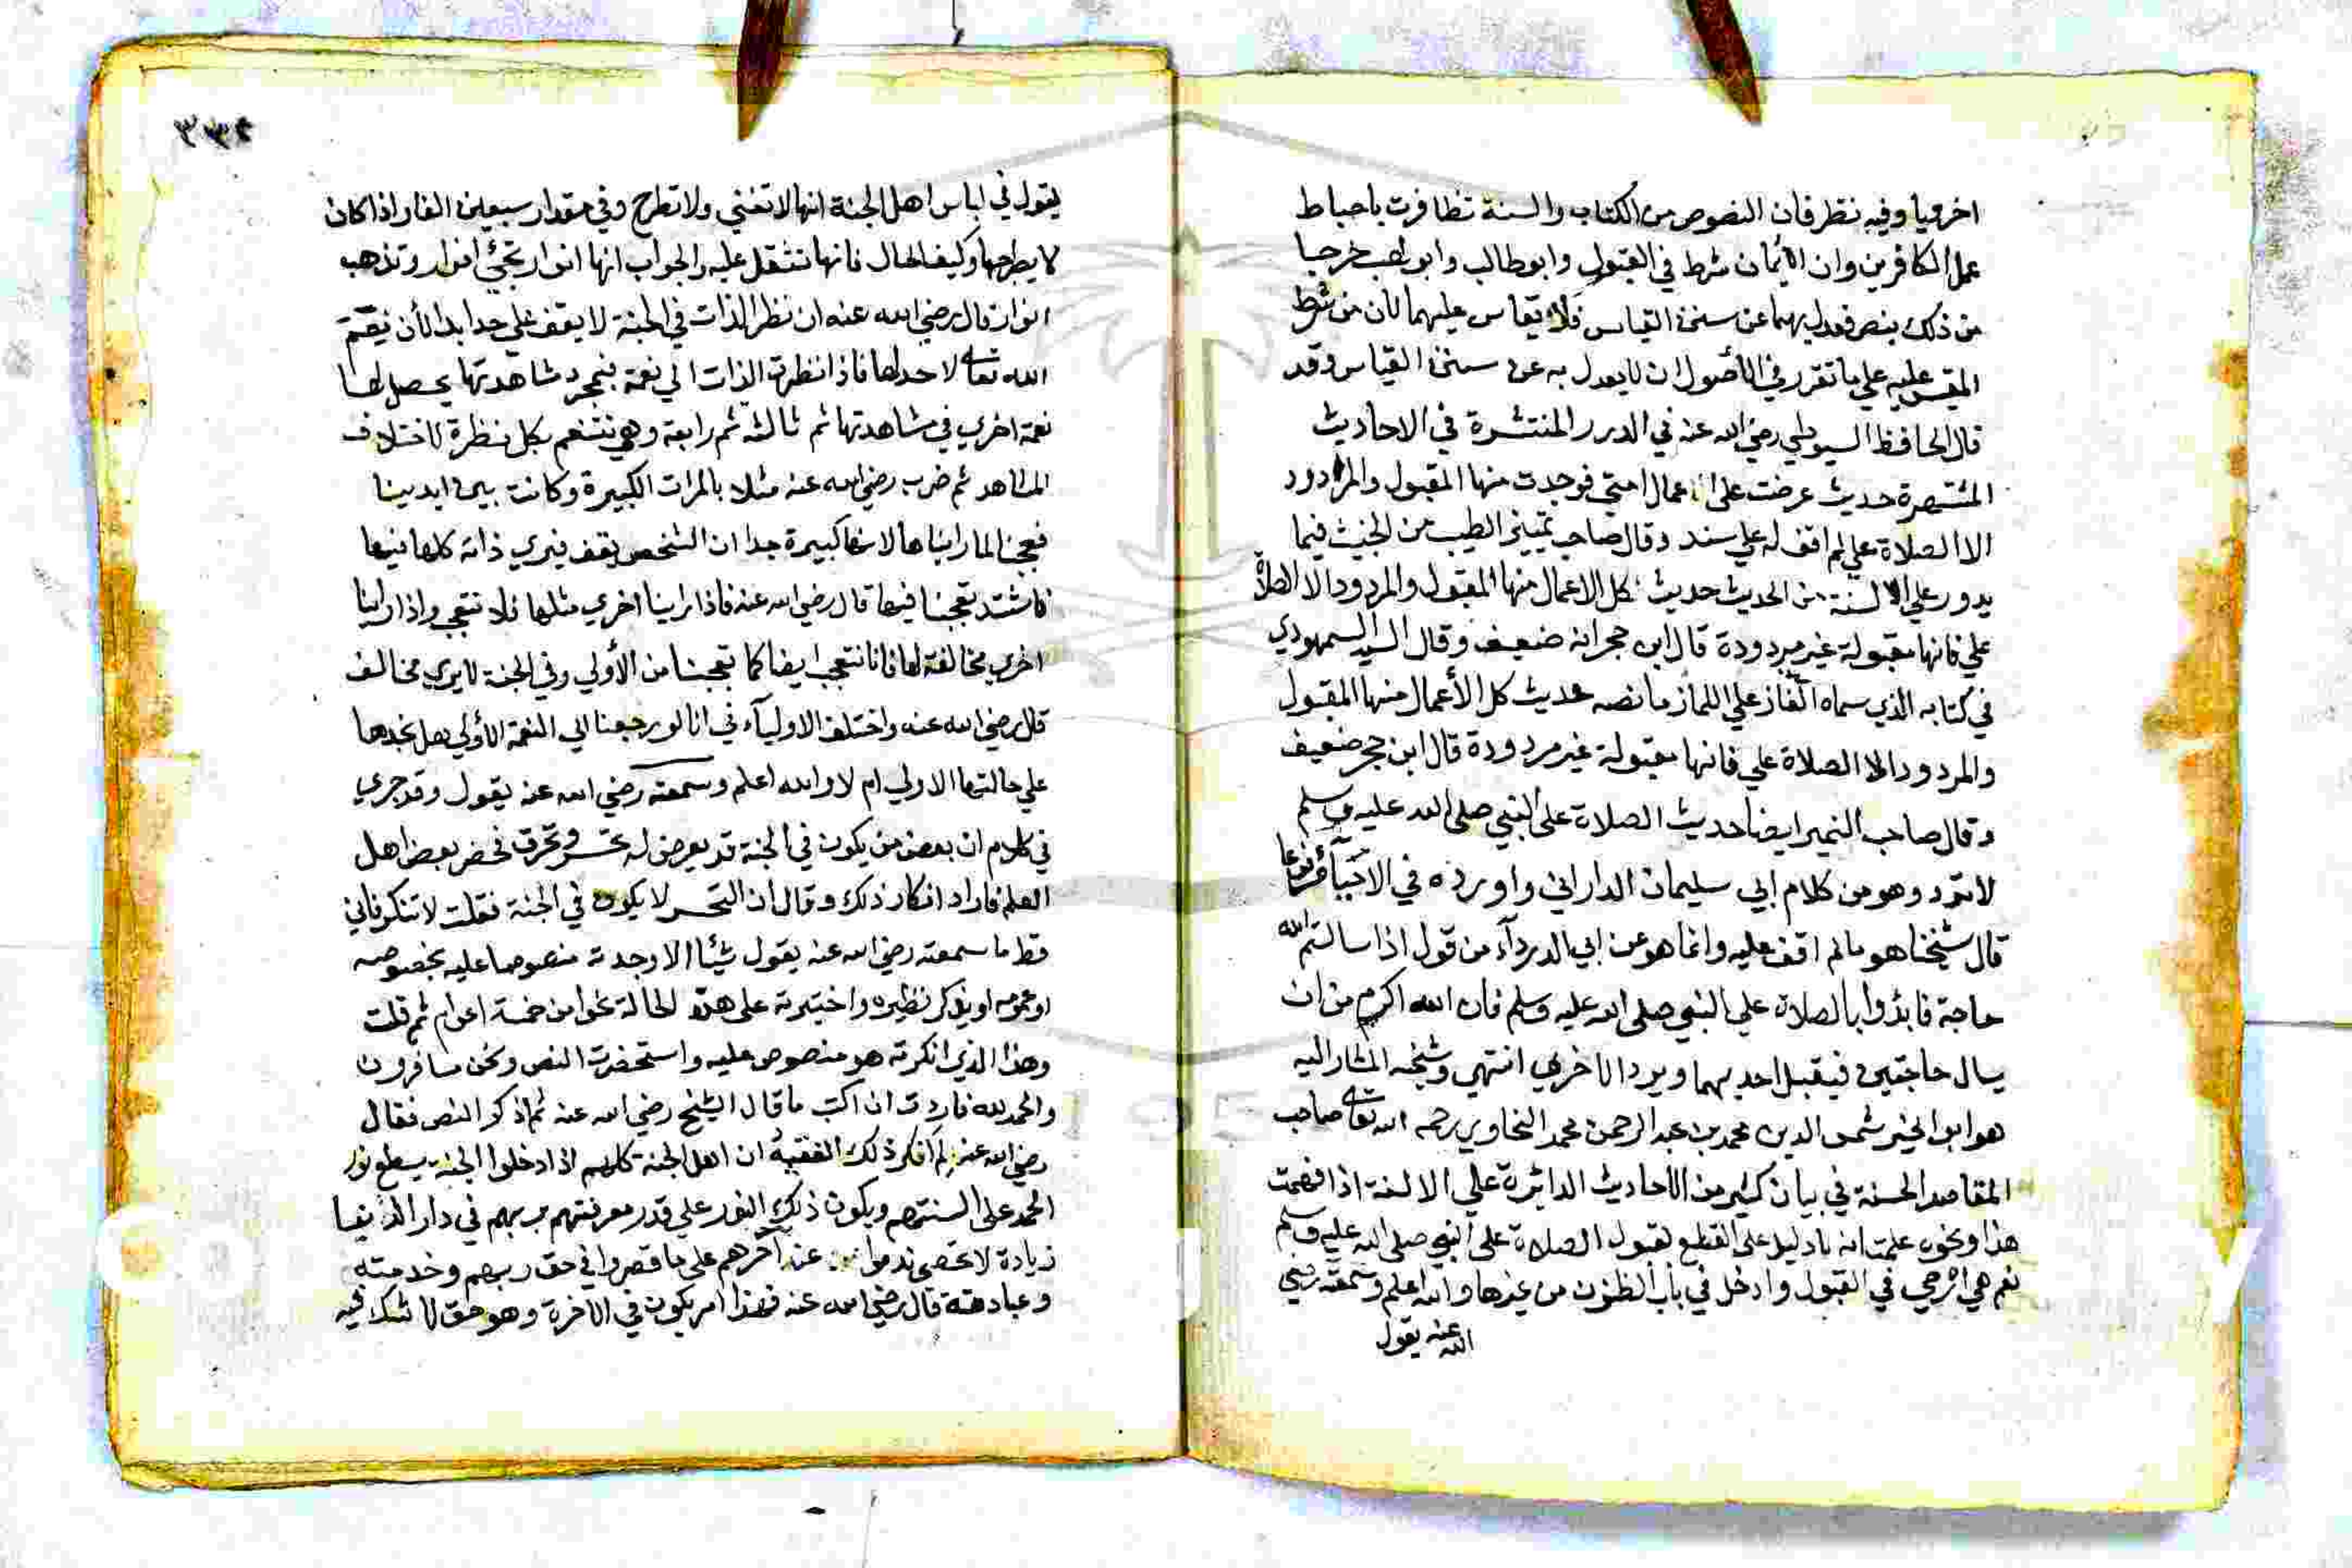 اخرويا وفيه نظر فان النصوص من الكتاب والسنة تظافرت باحباط
عمل الكافرين وان الأيمان شرط في القبول وابوطالب وابولهب خرجا
من ذلك بنص فعدل بهما عن سنن القياس فلا يقاس عليهما لان من شرط
المقيس عليه علي ما تقرر في الأصول ان لا يعدل به عن سنن القياس وقد
قال الحافظ السيوطي رضي الله عنه في الدرر المنتشرة في الاحاديث
المشتهرة حديث عرضت علي اعمال امتي فوجدت منها المقبول والمردود
الا الصلاة علي لم اقف له علي سند وقال صاحب تمييز الطيب من الخبيث فيما
يدور علي الالسنة من الحديث حديث كل الاعمال منها المقبول والمردود الا الصلاة
علي فانها مقبولة غير مردودة قال ابن حجر انه ضعيف وقال السيد السمهودي
في كتابه الذي سماه الغماز علي اللماز ما نصه حديث كل الأعمال منها المقبول
والمردود الا الصلاة علي فانها مقبولة غير مردودة قال ابن حجر ضعيف
وقال صاحب التمييز ايضا حديث الصلاة علي النبي صلي الله عليه وسلم
لا ترد وهو من كلام ابي سليمان الداراني واورده في الاحياء مرفوعا
قال شيخنا هو مالم اقف عليه وانما هو عن ابي الدرداء من قول اذا سالتم الله
حاجة فابدؤا بالصلاة علي النبي صلي الله عليه وسلم فان الله اكرم من ان
يسال حاجتين فيقبل احديهما ويرد الاخري انتهي وشيخه المشار اليه
هو ابو الخير شمس الدين محمد بن عبد الرحمن محمد السخاوي رحمه الله تعالى صاحب
المقاصد الحسنة في بيان كثير من الاحاديث الدائرة علي الالسنة اذا فهمت
هذا ونحوه علمت انه لا دليل علي القطع لقبول الصلاة علي النبي صلي الله عليه وسلم
نعم هي ارجي في القبول وادخل في باب الظنون من غيرها والله اعلم وسمعته رضي
الله عنه يقول
٣٣٤
يقول في لباس اهل الجنة انها لا تفني ولا تطرح وفي مقدار سبعين الفا واذا كان
لا يطرحها وكيف الحال فانها تثقل عليه والجواب انها انوار تجئ انوار وتذهب
انوار قال رضي الله عنه ان نظر الذات في الجنة لا يقف علي حد ابدا لأن نعم
الله تعالى لا حد لها فاذا نظرت الذات الي نعمة فبمجرد مشاهدتها يحصل لها
نعمة اخري في مشاهدتها ثم ثالثة ثم رابعة وهي تتنعم بكل نظرة لاختلاف
المشاهد ثم ضرب رضي الله عنه مثلا بالمرات الكبيرة وكانت بين ايدينا
فعجبنا لما رايناها لانها كبيرة جدا ان الشخص يقف فيري ذاته كلها فيها
فاشتد تعجبنا فيها قال رضي الله عنه فاذا راينا اخري مثلها فلا نتعجب واذا راينا
اخري مخالفة لها فانا نتعجب ايضا كما تعجبنا من الأولي وفي الجنة لا يري مخالف
قال رضي الله عنه واختلف الاولياء في انا لو رجعنا الي النعمة الأولي هل نجدها
علي حالتها الاولي ام لا والله اعلم وسمعته رضي الله عنه يقول وقد جري
في كلام ان بعض من يكون في الجنة قد يعرض له تحسر وتحرق فحضر بعض اهل
العلم فاراد انكار ذلك وقال ان التحسر لا يكون في الجنة فقلت لا تنكر فاني
قط ما سمعته رضي الله عنه يقول شيأ الا وجدته منصوصا عليه بخصوصه
او عمومه او يذكر نظيره واختبرته علي هذه الحالة نحوا من خمسة اعوام ثم قلت
وهذا الذي انكرته هو منصوص عليه واستحضرت النص ونحن مسافرون
والحمد لله فاردت ان اكتب ما قال الشيخ رضي الله عنه ثم اذكر النص فقال
رضي الله عنه لم انكر ذلك الفقيه ان اهل الجنة كلهم اذا دخلوا الجنة يسطع نور
الحمد علي السنتهم ويكون ذلك النور علي قدر معرفتهم بربهم في دار الدنيا
زيادة لا تحصي ندموا عن اخرهم علي ما قصروا في حق ربهم وخدمته
وعبادته قال رضي الله عنه فهذا امر يكون في الاخرة وهو حق لا شك فيه